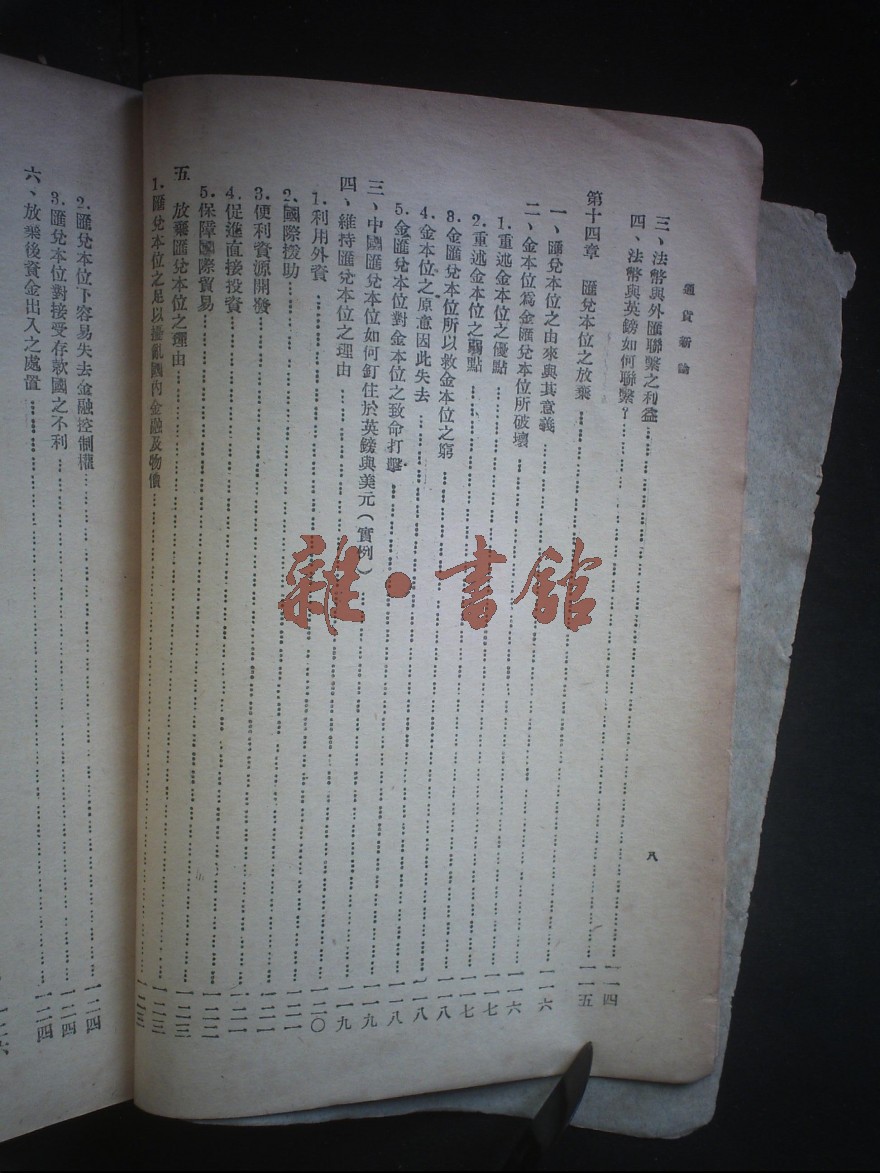 通貨新論
八
三、法幣與外匯聯繫之利益……
四、法幣與英鎊如何聯繫?……一一四
第十四章 匯兌本位之放棄……一一五
一、匯兌本位之由來與其意義……一一六
二、金本位為金匯兌本位所破壞……一一六
1.重述金本位之優點……一一七
2.重述金本位之弱點……一一七
3.金匯兌本位所以救金本位之窮……一一八
4.金本位之原意因此失去……一一八
5.金匯兌本位對金本位之致命打擊……一一八
三、中國匯兌本位如何釘住於英鎊與美元(實例)……一一九
四、維持匯兌本位之理由……一一九
1.利用外資……一二〇
2.國際援助……一二一
3.便利資源開發……一二一
4.促進直接投資……一二一
5.保障國際貿易……一二二
五 放棄匯兌本位之理由……一二三
1.匯兌本位之足以擾亂國內金融及物價……一二三
2.匯兌本位下容易失去金融控制權……一二四
3.匯兌本位對接受存款國之不利……一二四
六、放棄後資金出入之處置……一二四
一二六
雜·書館